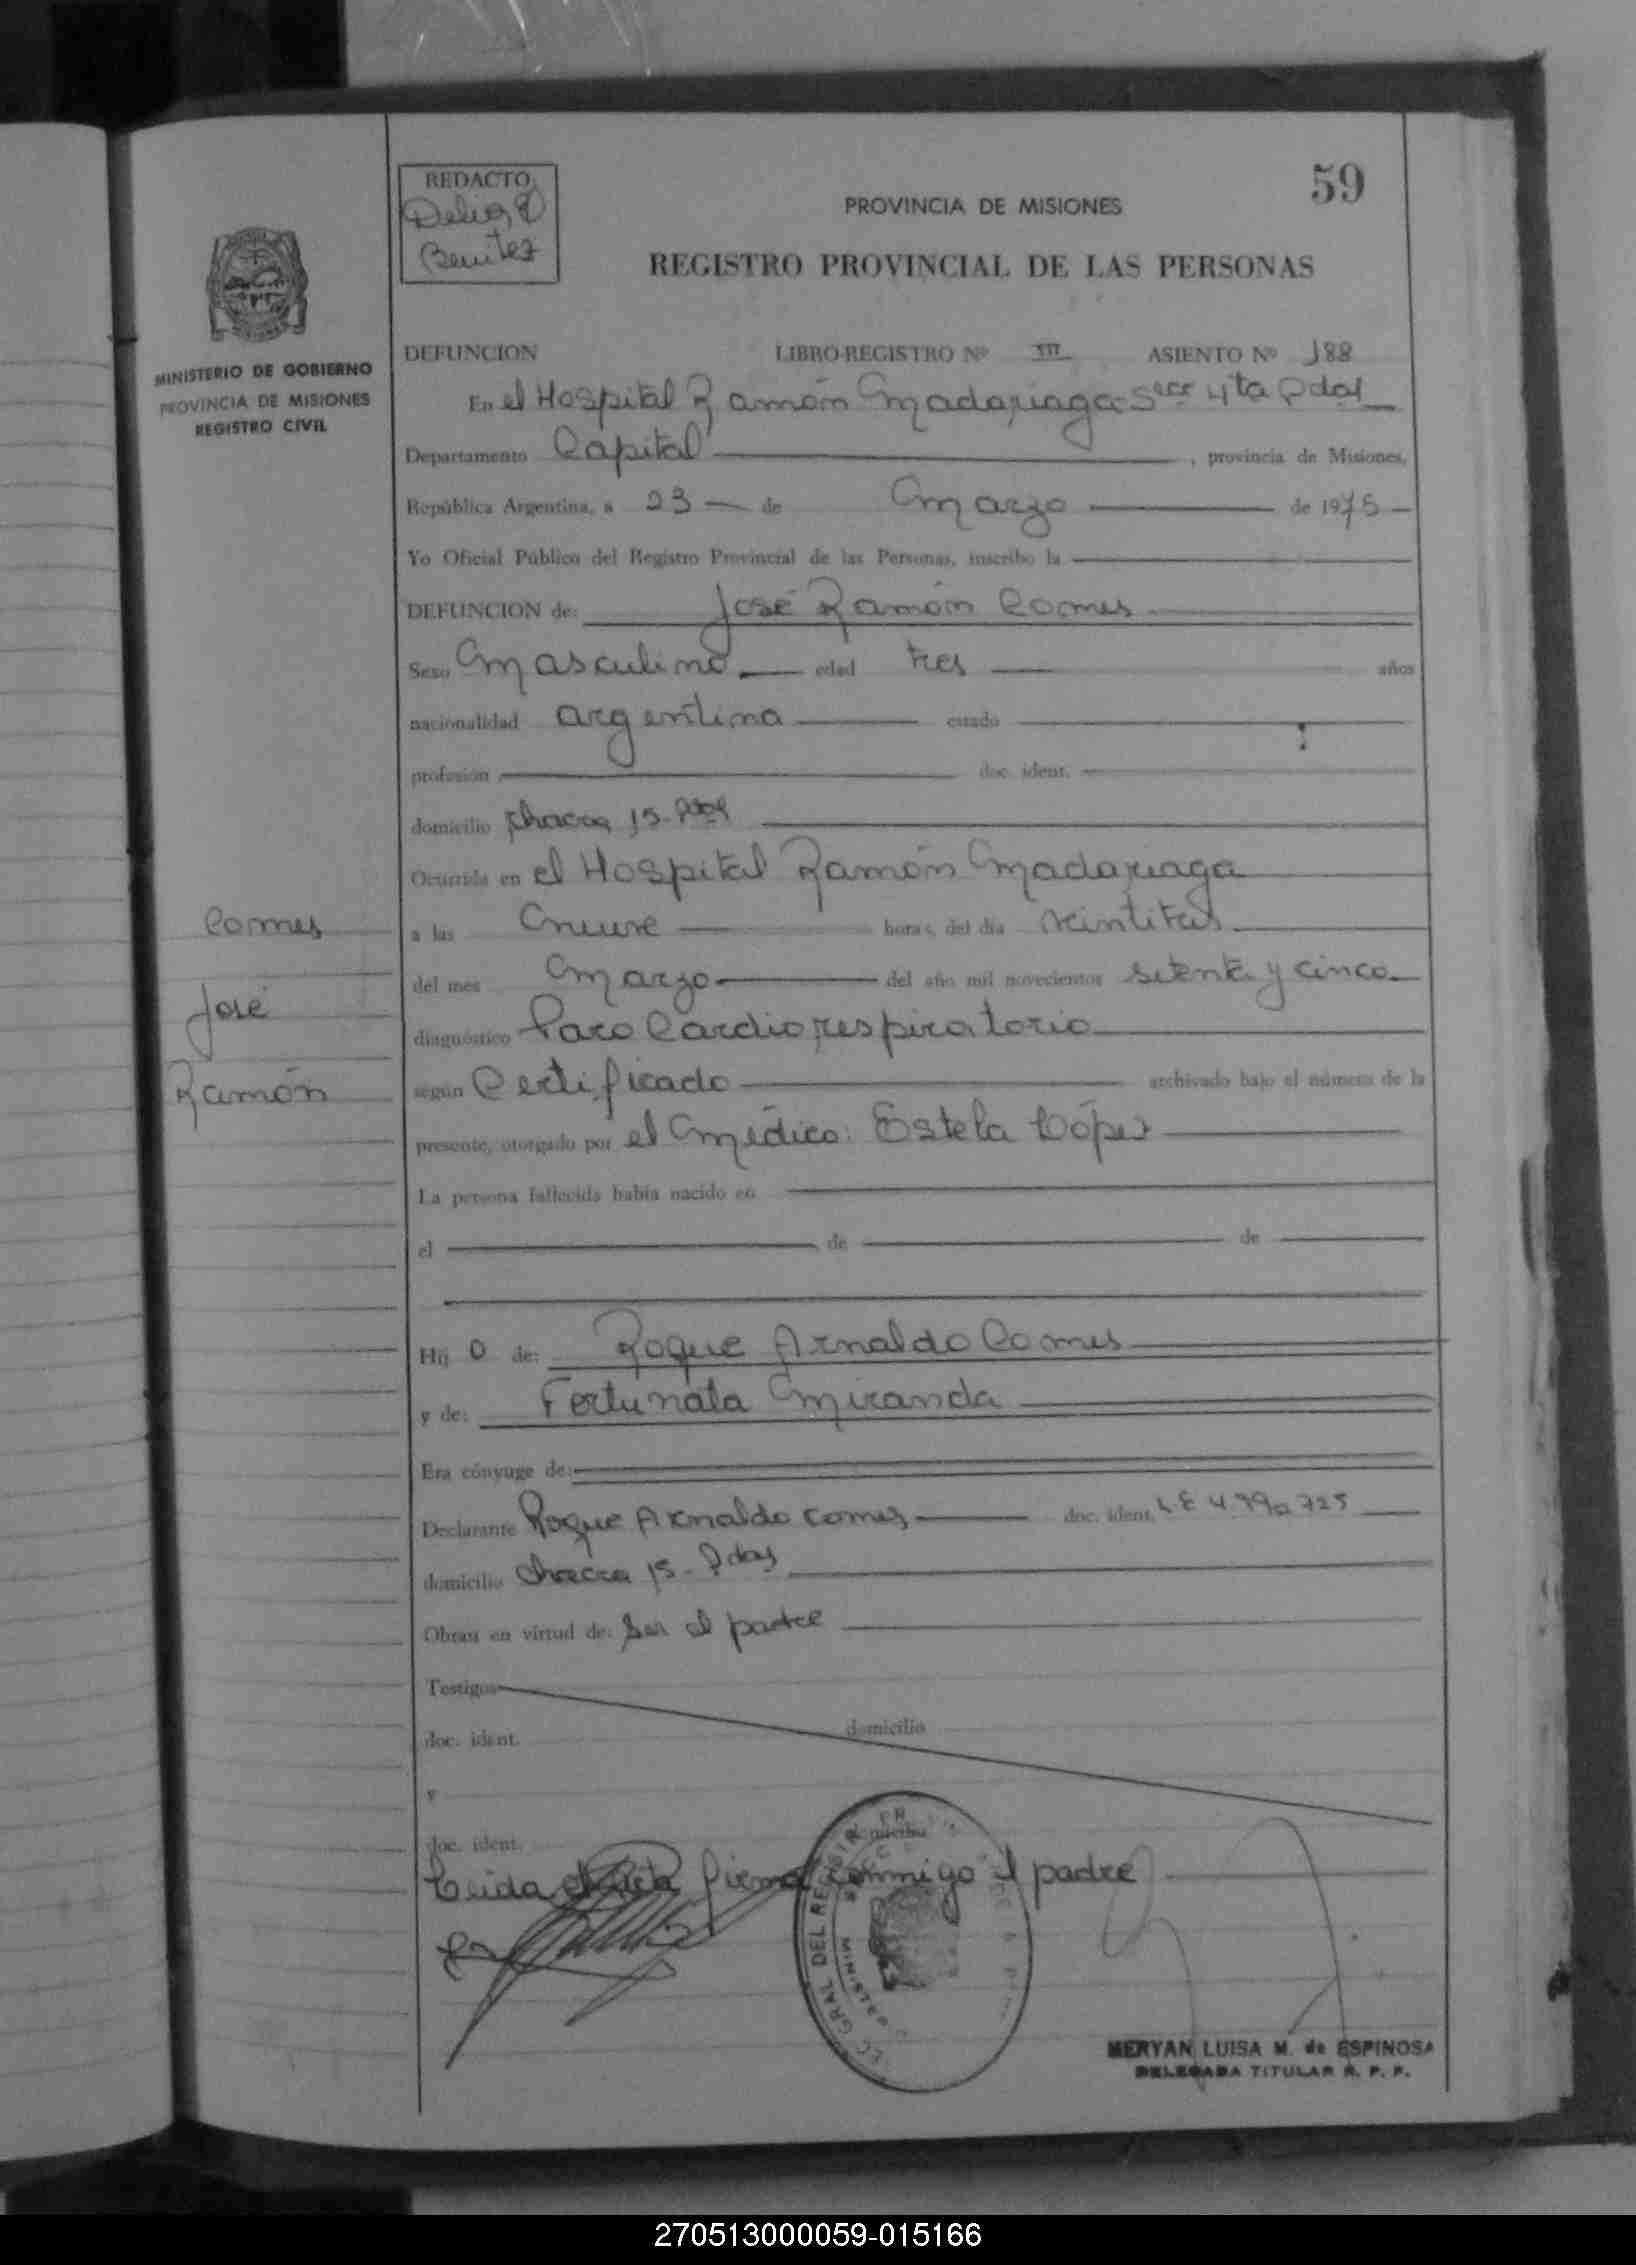 59
REDACTO
Delia
Benitez
PROVINCIA DE MISIONES
REGISTRO PROVINCIAL DE LAS PERSONAS
MINISTERIO DE GOBIERNO
PROVINCIA DE MISIONES
REGISTRO CIVIL
DEFUNCION LIBRO-REGISTRO Nº III ASIENTO Nº 188
En el Hospital Ramón Madariaga Secc 4ta Pdas
Departamento Capital , provincia de Misiones,
República Argentina, a 23 de Marzo de 1975
Yo Oficial Público del Registro Provincial de las Personas, inscribo la
DEFUNCION de: José Ramón Comes
Sexo Masculino edad tres años
nacionalidad argentina estado
profesión doc. ident.
domicilio chacra 15-Pdas
Ocurrida en el Hospital Ramón Madariaga
a las Nueve horas, del día veintitres
del mes Marzo del año mil novecientos setenta y cinco
diagnóstico Paro Cardiorespiratorio
según Certificado archivado bajo el número de la
presente, otorgado por el Médico: Estela López
La persona fallecida había nacido en
el de de
Hij o de: Roque Arnaldo Comes
y de: Fortunata Miranda
Era cónyuge de:
Declarante Roque Arnaldo Comes doc. ident. L.E
domicilio chacra 15-Pdas
Obran en virtud de: Ser el padre
Testigos
doc. ident. domicilio
y
doc. ident. domicilio
Leida el acta firma conmigo el padre
Comes
José
Ramón
GRAL DEL REGISTR
MERYAN LUISA M. de ESPINOSA
DELEGADA TITULAR R. P. P.
270513000059-015166